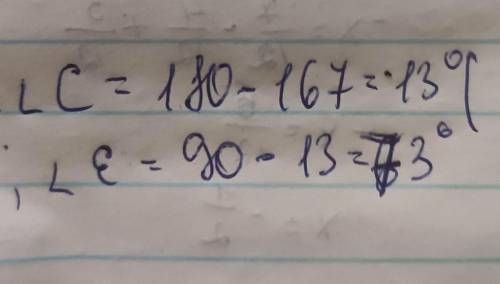 ∠C = 180 - 167 = 13°
∠E = 90 - 13 = 73°